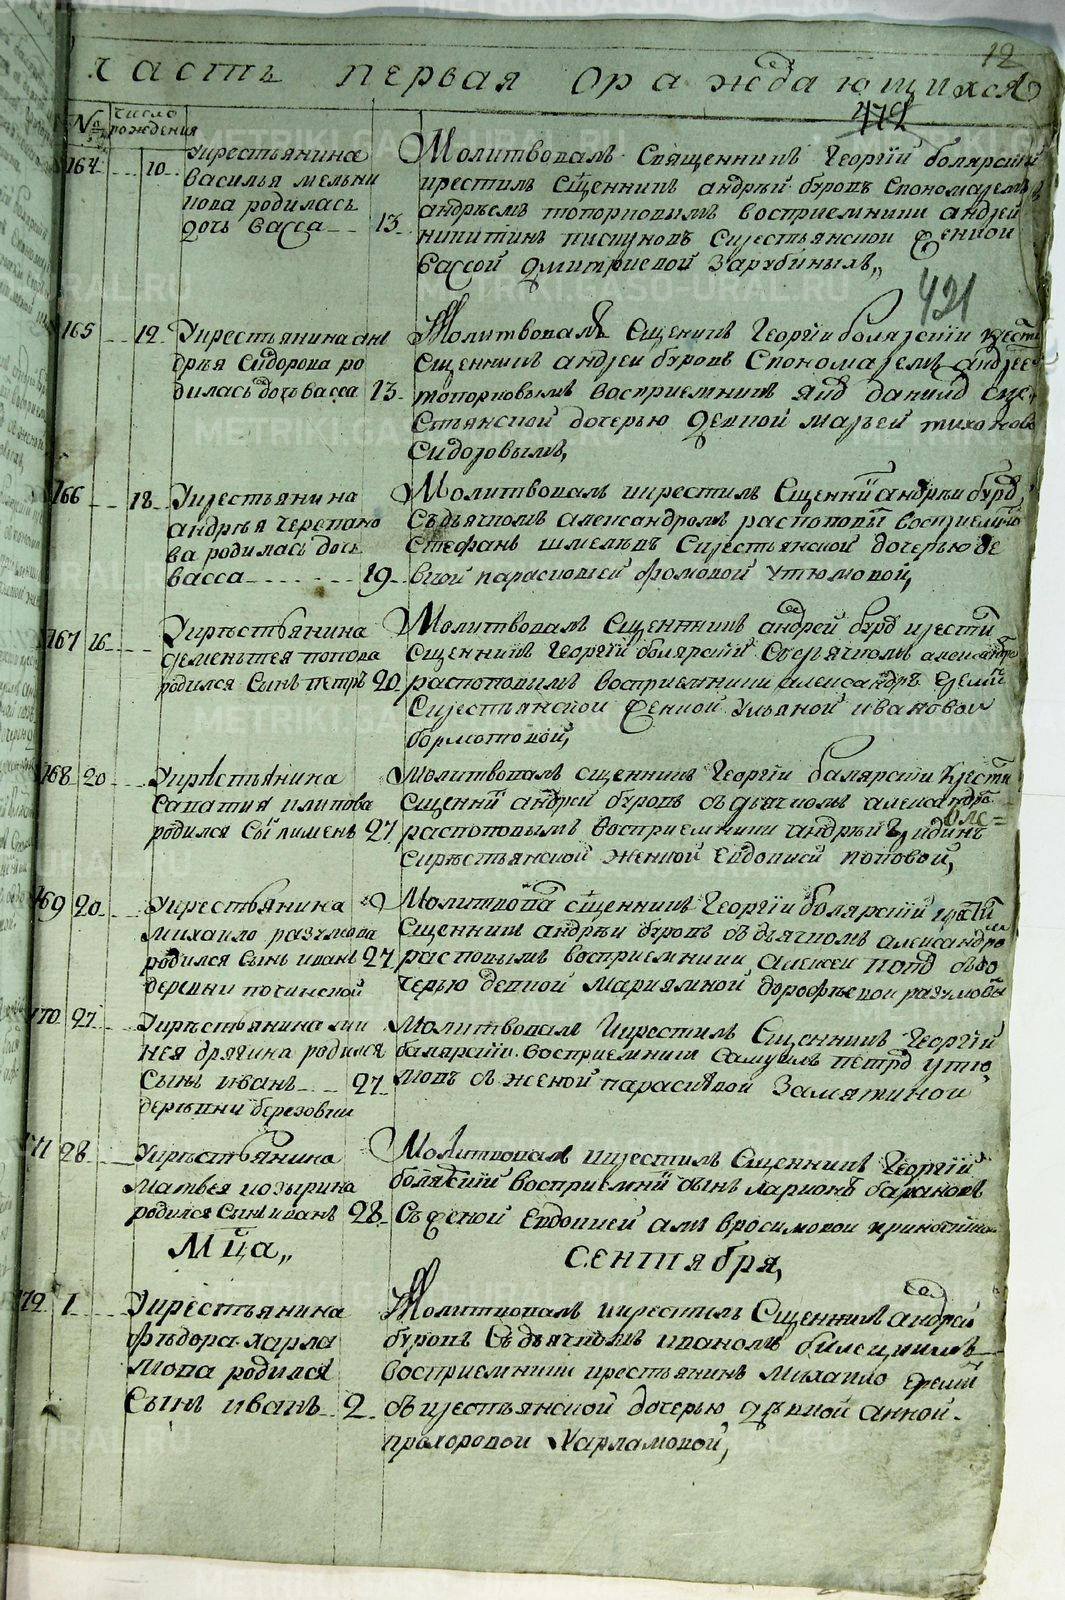 12
часть первая ораждающихся
472
№ число рождения
421
164 10 Укрестьянина
василья мельни
кова родилась
дочь васса 13
Молитвовалъ Священникъ Георгий болярский
крестилъ Сщенникъ андрей буровъ Спономаремъ
андреемъ топорковымъ восприемники андрей
никитинъ пискуновъ Скрестьянскои женкои
вассой дмитриевой Зарубиныхъ
165 12 Укрестьянина ан
дрья Сидорова ро
дилась дочь васса 13
Молитвовалъ Сщенникъ Георгии болярскии крести
Сщенникъ андреи буровъ Спономаремъ андрее
топорковымъ восприемникъ данилд скре
стьянской дочерью девкой марьей тихоново
Сидоровымъ,
166 18 Укрестьянина
андрья черепано
ва родилась дочь
васса 19
Молитвовалъ икрестилъ Сщенникъ андреи буро
Съдьячкомъ александромъ распоповы восприемни
Стефанъ шмелевъ Скрестьянской дочерью де
вкой парасковией фомовой утюмовой,
167 16 Укрестьянина
дементея попова
родился Сынъ петръ 20
Молитвовалъ Сщенникъ андрей буро крести
Сщенникъ Георгии болярскии Сдьячкомъ александро
распоповымъ восприемники александръ
Скрестьянской женкой ульяной ивановой
бормотовой,
168 20 Укрестьянина
сапатия илипова
родился Сы пименъ 27
Молитвовалъ сщенникъ Георгии балярскии крести
Сщенни андрей буровъ съдьячкомъ александро
распоповымъ восприемники андрей
Скрестьянской женкой Евдокией поповой,
169 20 Укрестьянина
михаило разумова
родился Сынъ иванъ 27
деревни починской
Молитвова сщенникъ Георгии болярский крести
Сщенникъ андреи буровъ съдьячкомъ александро
распоповымъ восприемники алексеи попо здо
черью девкой Мариямной дорофьевои разумовы
170 27 Укрестьянина
нея дрягина родился
Сынъ иванъ 27
деревни березовки
Молитвовалъ Икрестилъ Сщенникъ Георгий
балярскии восприемники Самуилъ петро утю
мовъ съ женой парасковой Замятиной
171 28 Укрестьянина
Матвея козырина
родился Сынъ иванъ 28
Молитвовалъ икрестилъ Сщенникъ Георгий
болярскии восприемни сынъ ларионъ баранова
Съ женой Евдокией амвросимовои
Мца Сентября,
172 1 Укрестьянина
фьдора харла
мова родился
Сынъ иванъ 2
Молитвовалъ икрестилъ Сщенникъ андрей
буровъ Съдьячкомъ иваномъ билецкимъ
Восприемники крестьянинъ Михаило
съ крестьянской дочерью девкой анной
прохоровои Харламовой,